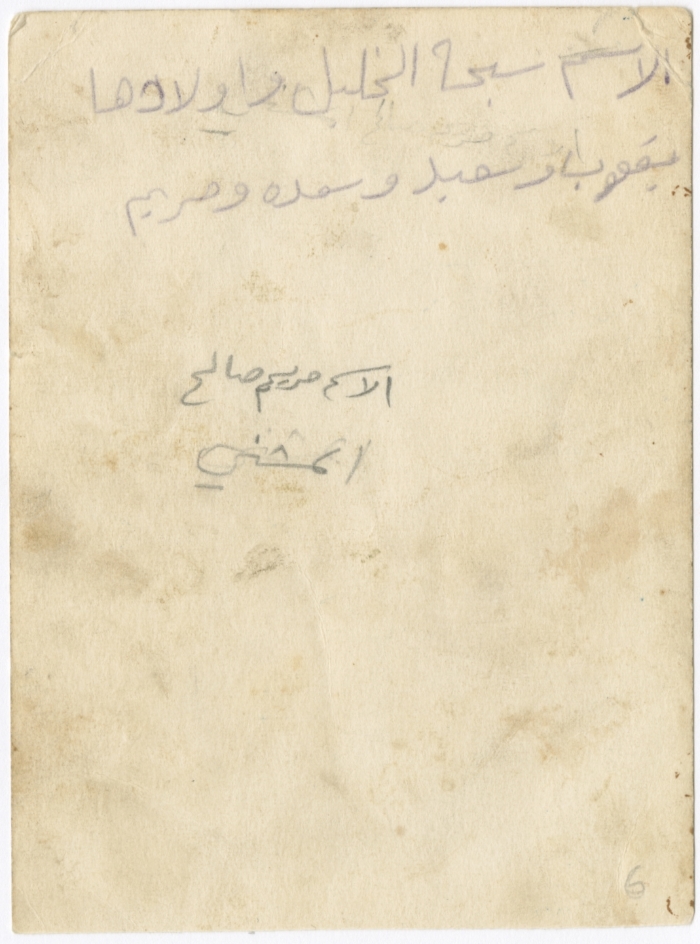 الاسم سبحة الخليل واولادها
يعقوب وسعيد وسعده ومريم
الاسم مريم صالح
المثني
6